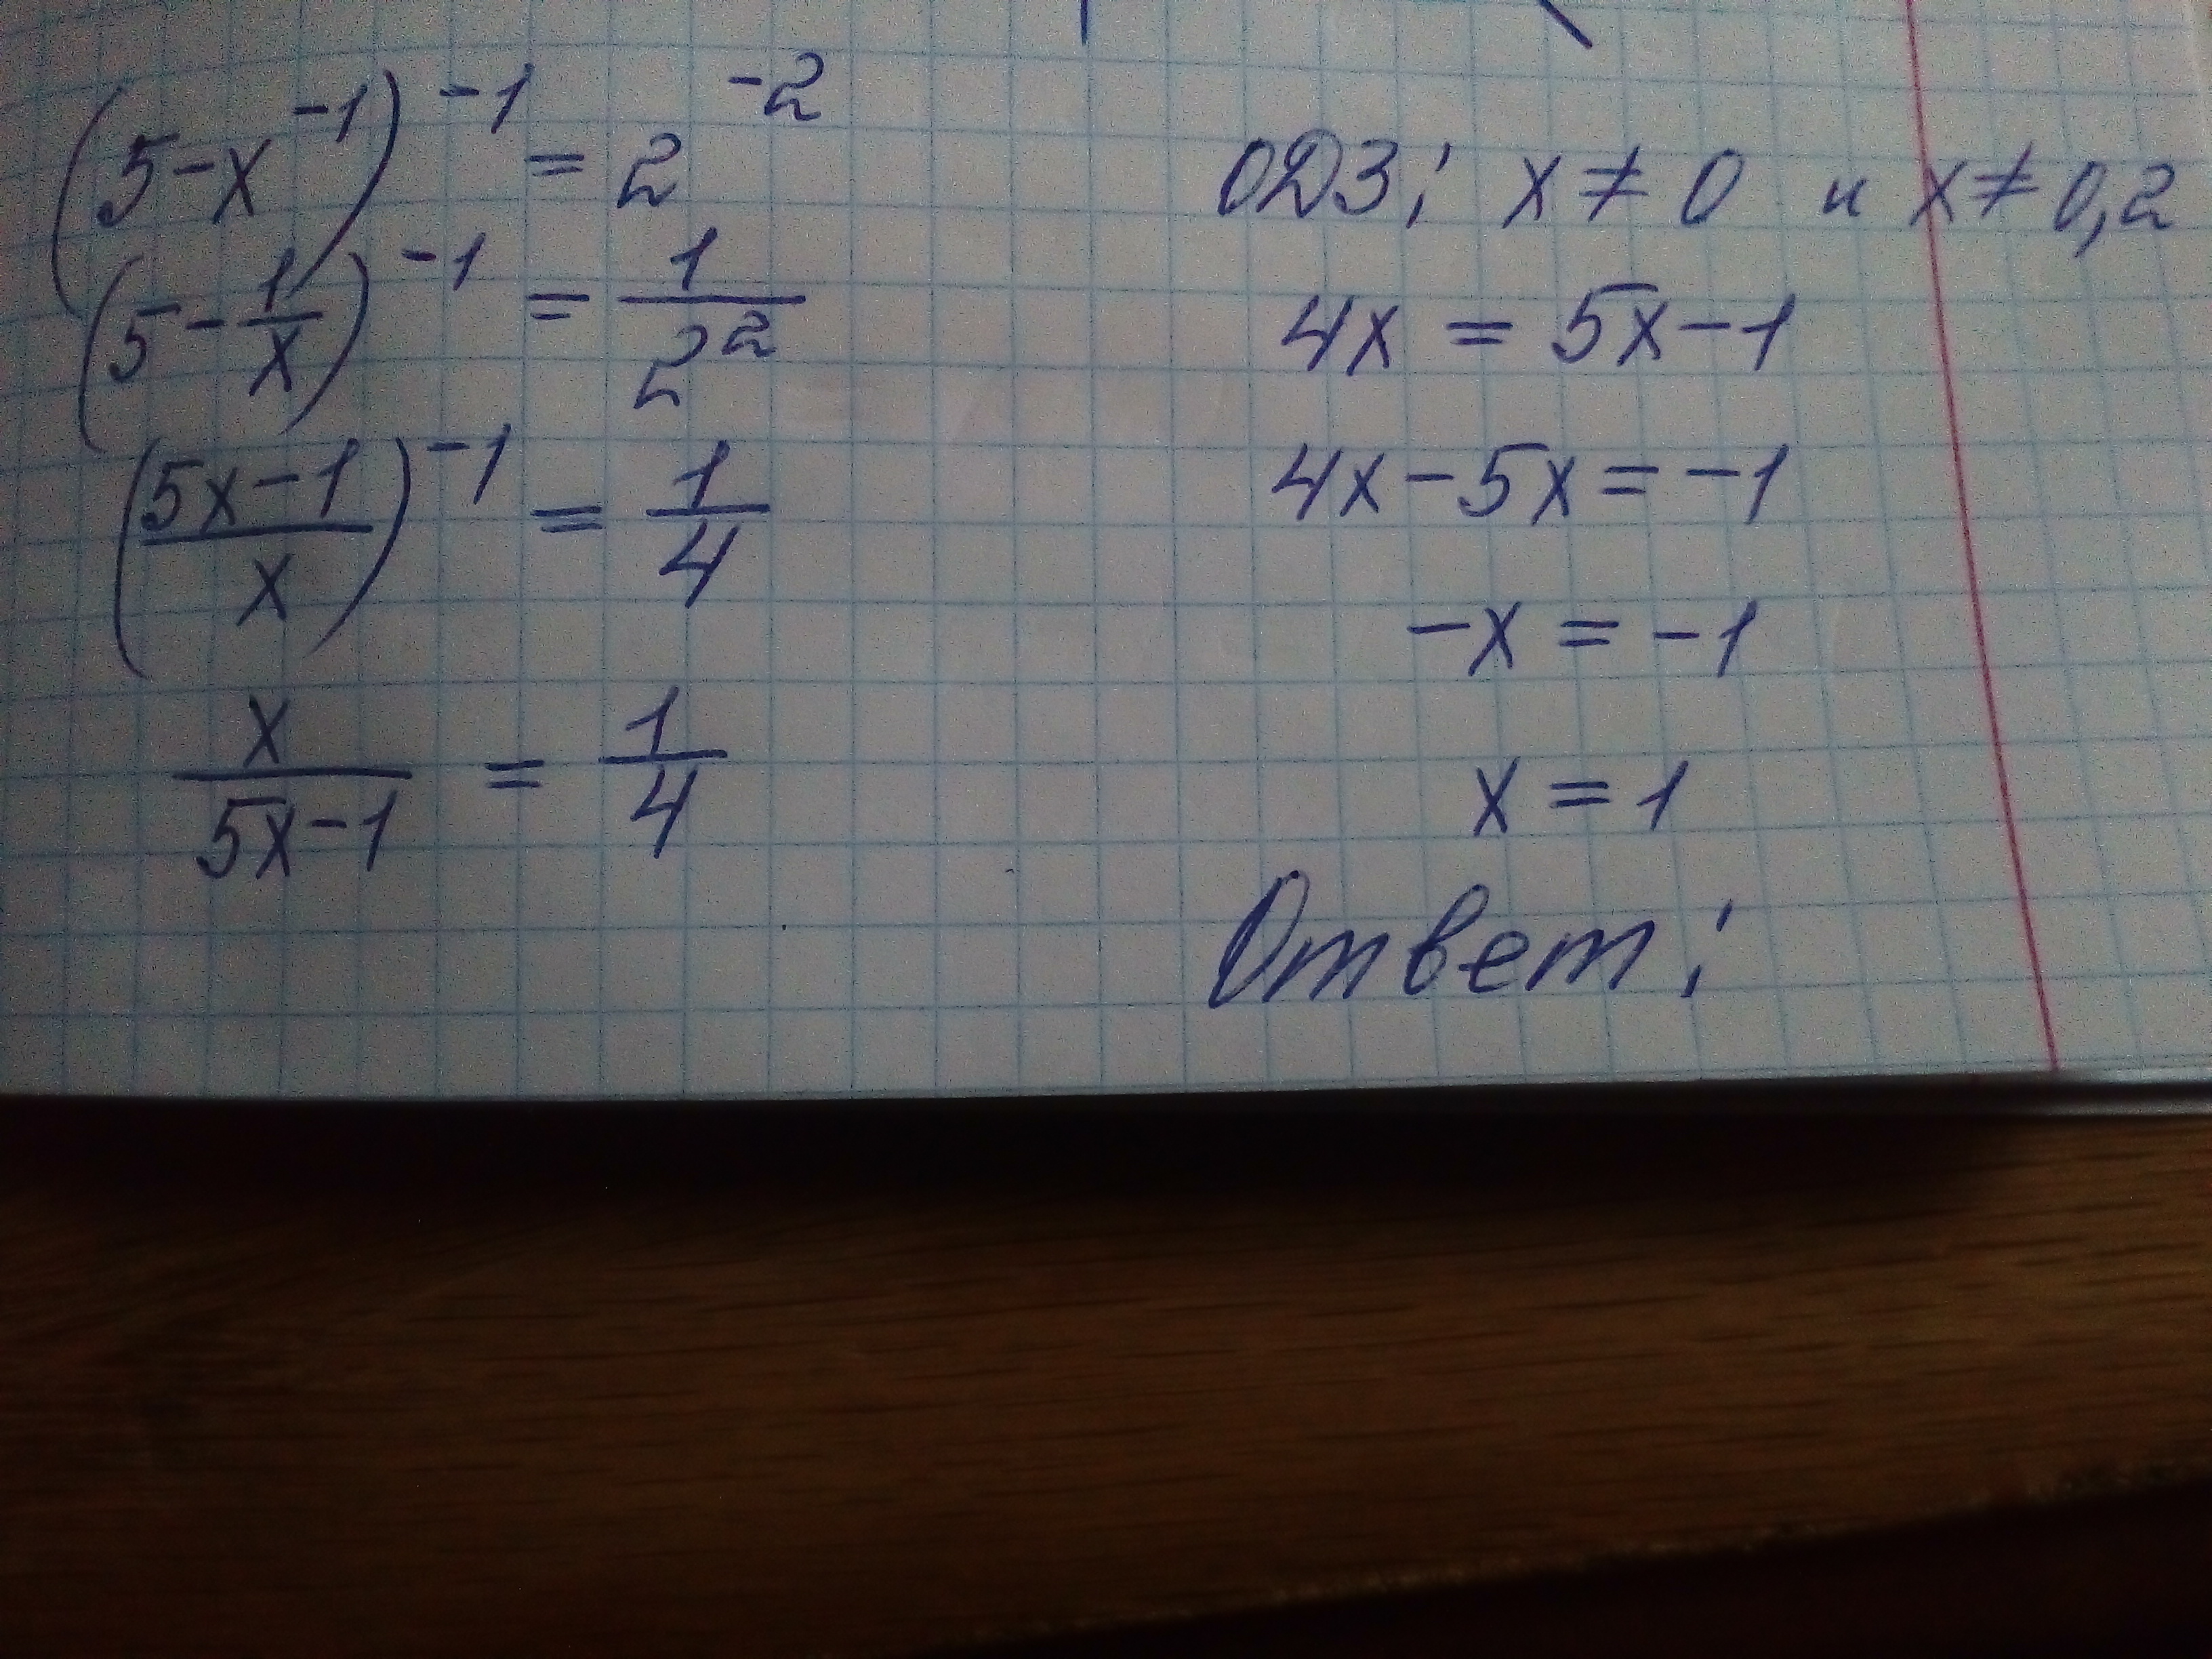 (5-x⁻¹)⁻¹ = 2⁻²
(5-1/x)⁻¹ = 1/2²
((5x-1)/x)⁻¹ = 1/4
x/(5x-1) = 1/4
ОДЗ: x ≠ 0 и x ≠ 0,2
4x = 5x-1
4x-5x = -1
-x = -1
x = 1
Ответ: